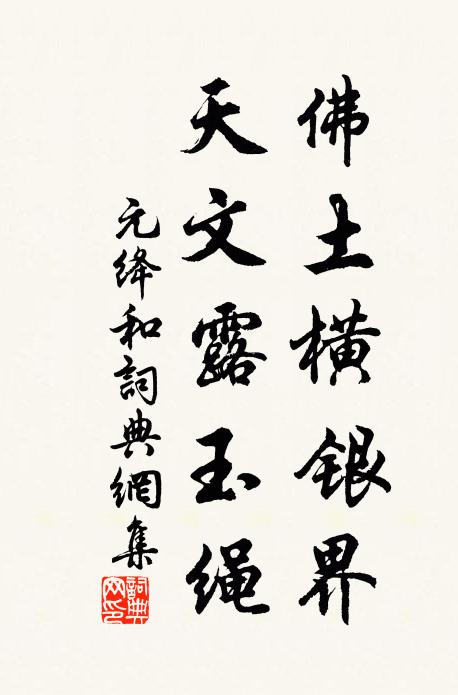 佛土橫銀界
天文露玉绳
元绛和詞典網集
詞典网印